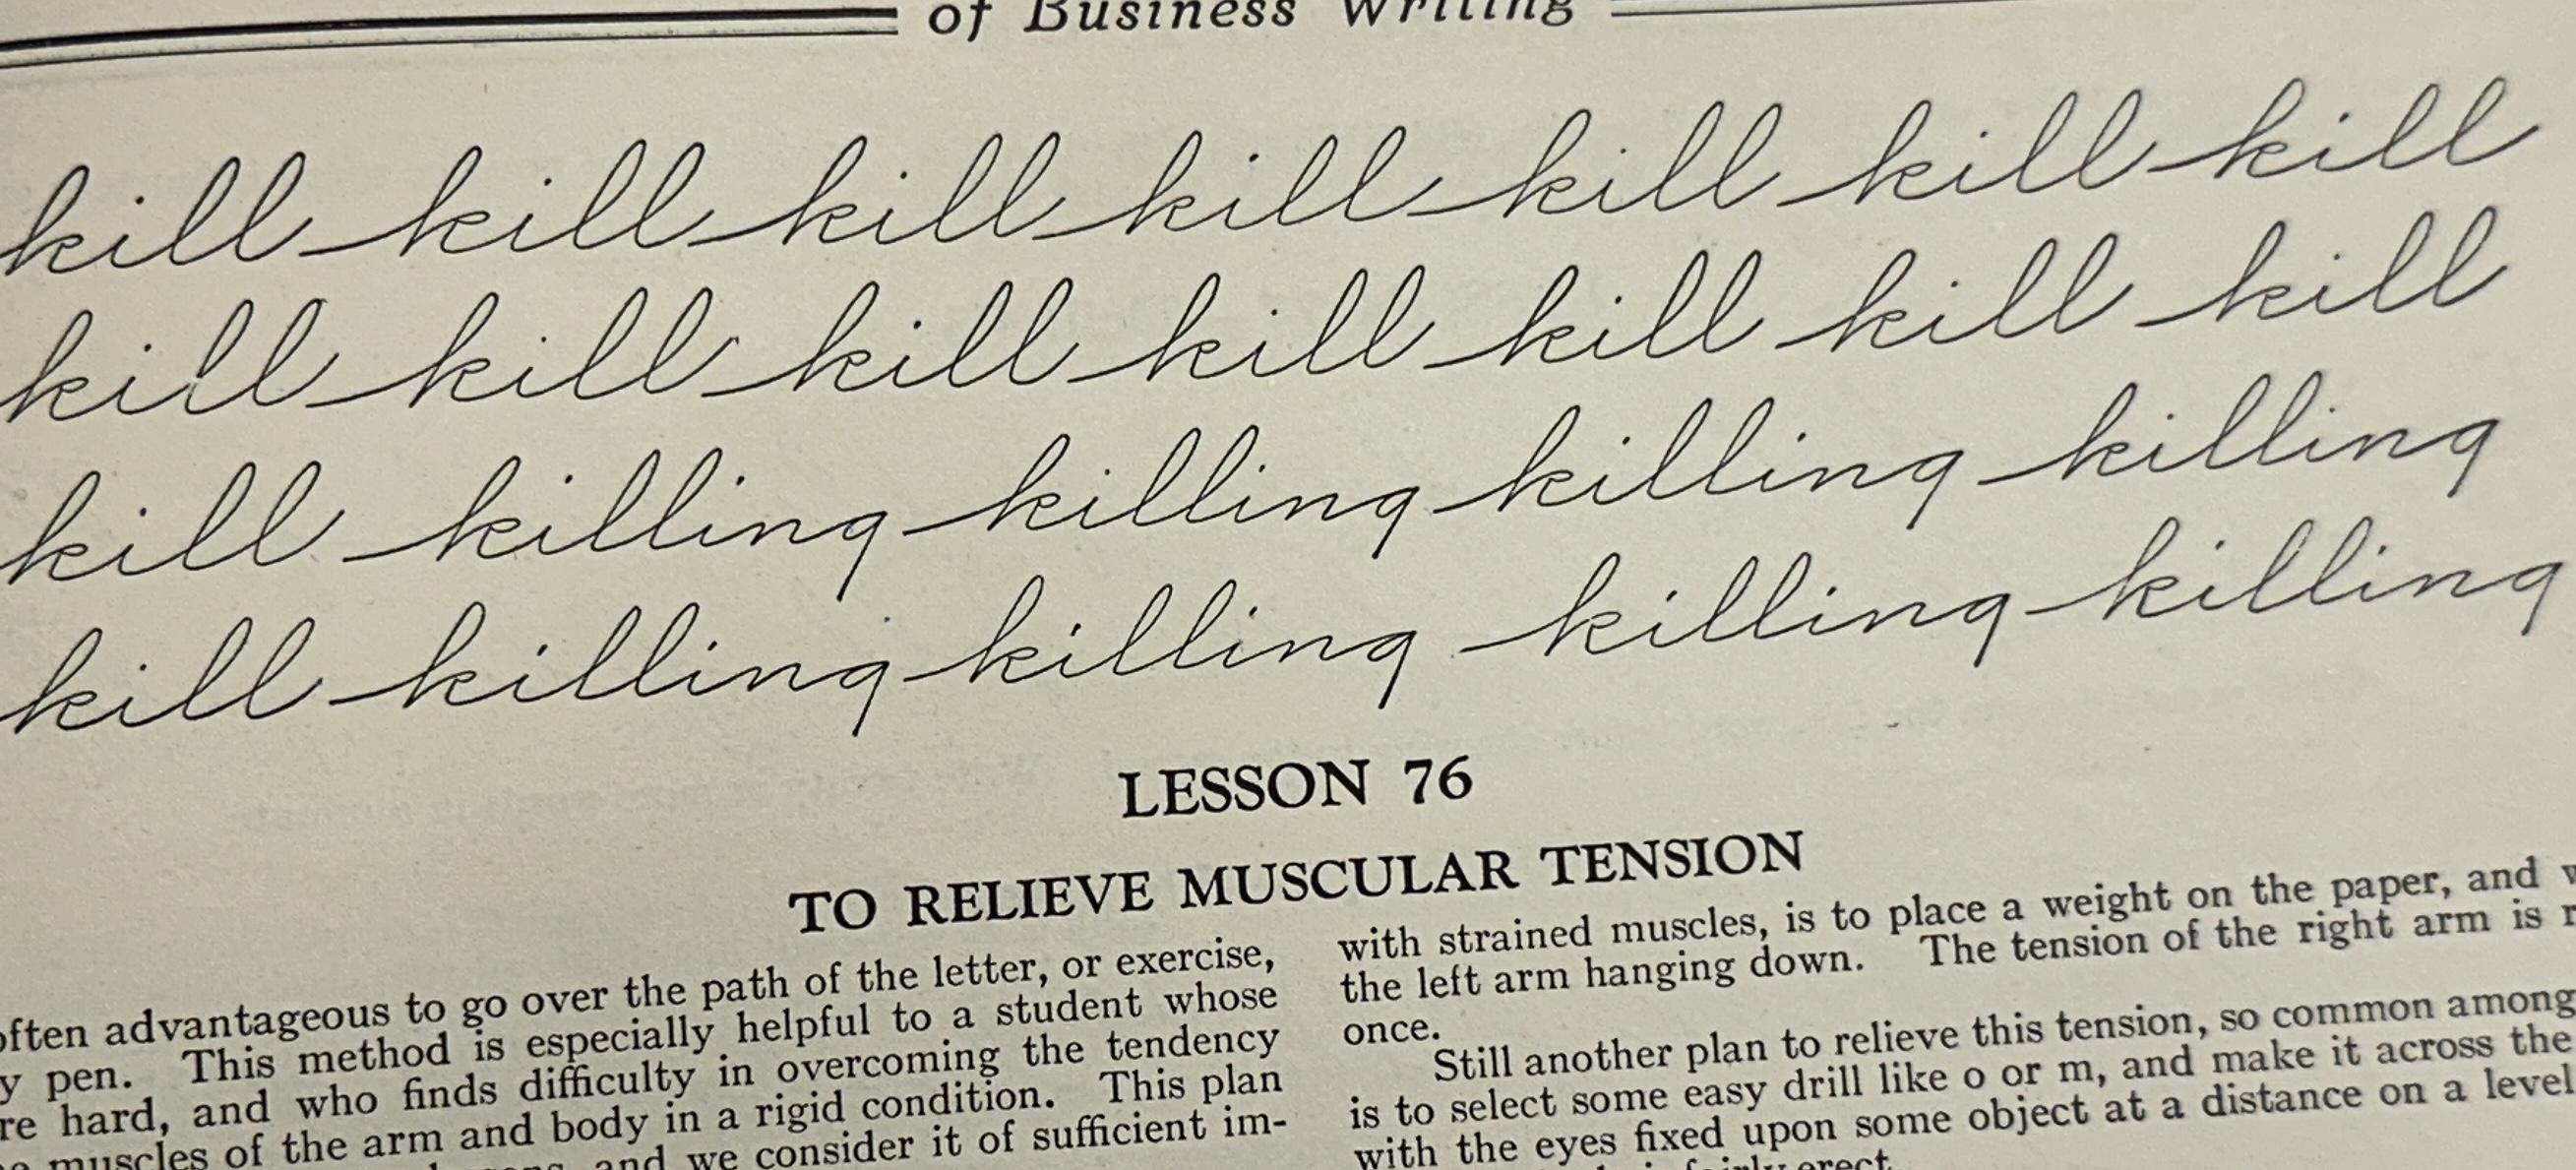 of Business Writing
kill kill kill kill kill kill kill
kill kill kill kill kill kill kill
kill killing killing killing killing
kill killing killing killing killing
LESSON 76
TO RELIEVE MUSCULAR TENSION
often advantageous to go over the path of the letter, or exercise,
pen. This method is especially helpful to a student whose
hard, and who finds difficulty in overcoming the tendency
muscles of the arm and body in a rigid condition. This plan
and we consider it of sufficient im-
with strained muscles, is to place a weight on the paper, and
the left arm hanging down. The tension of the right arm is
once.
Still another plan to relieve this tension, so common among
is to select some easy drill like o or m, and make it across the
with the eyes fixed upon some object at a distance on a level
fairly erect